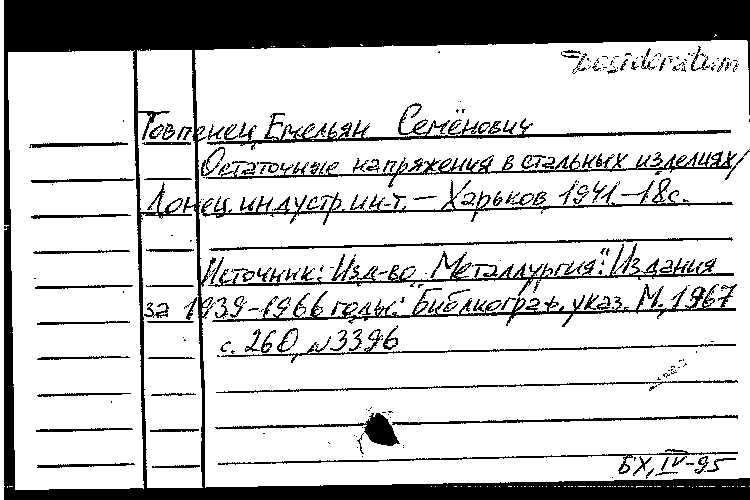 Desideratum
Товпенец Емельян Семёнович
Остаточные напряжения в стальных изделиях/
Донец. индустр. ин-т. — Харьков, 1941 — 18 с.
Источник: Изд-во „Металлургия": Издания
за 1939-1966 годы: Библиограф. указ. М., 1967
с. 260, №3396
БХ, IV-95